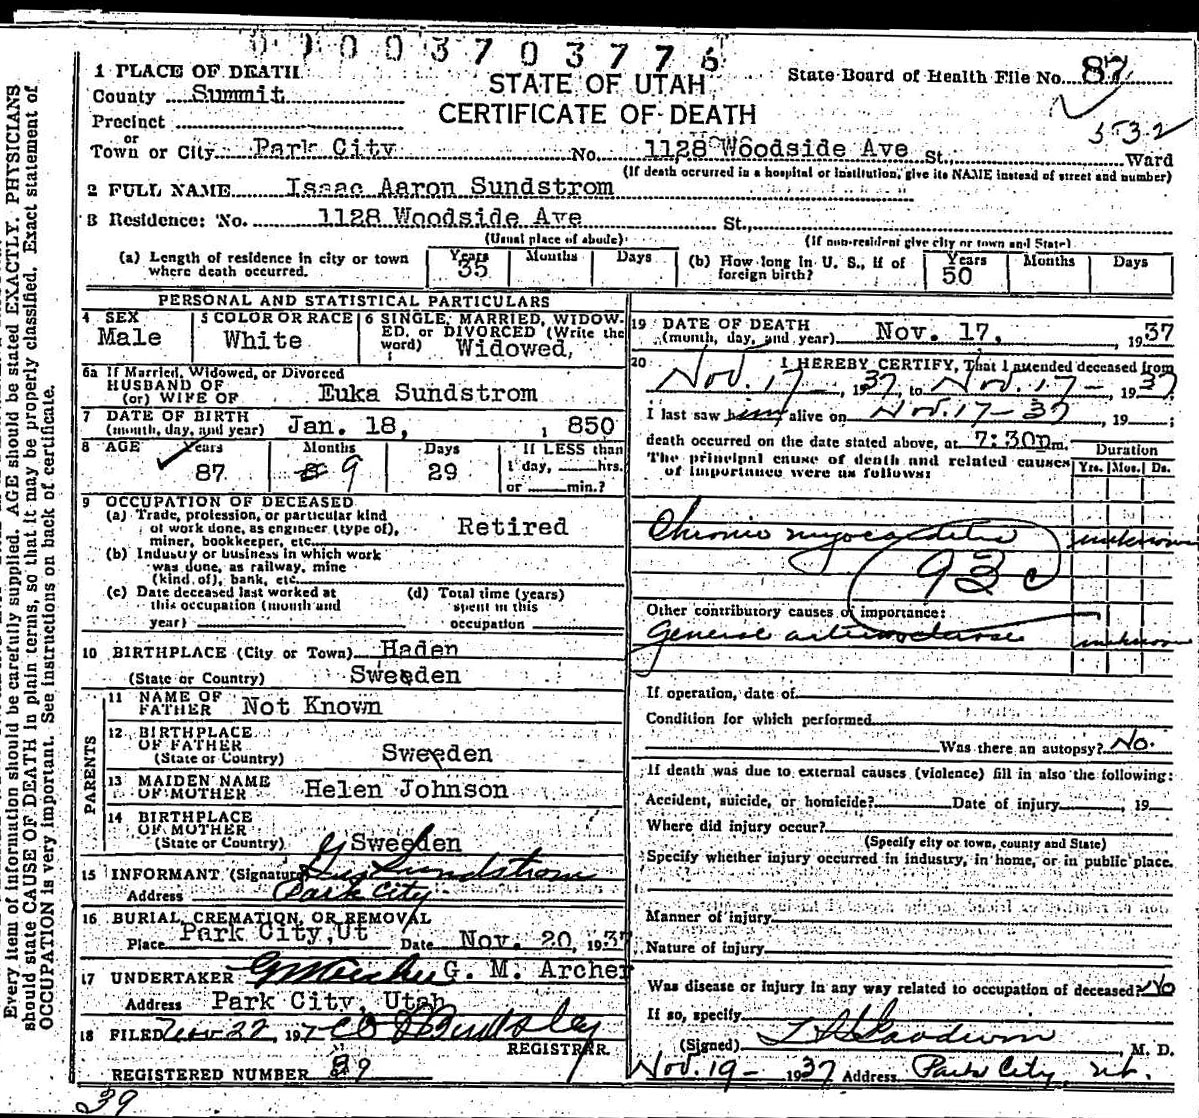 0003703776
1 PLACE OF DEATH
STATE OF UTAH
State Board of Health File No. 87
County Summit
CERTIFICATE OF DEATH
Precinct
532
or
Town or City Park City No. 1128 Woodside Ave St., Ward
(If death occurred in a hospital or institution, give its NAME instead of street and number)
2 FULL NAME Isaac Aaron Sundstrom
3 Residence: No. 1128 Woodside Ave St.,
(Usual place of abode) (If non-resident give city or town and State)
(a) Length of residence in city or town where death occurred. Years 35 Months Days
(b) How long in U. S., if of foreign birth? Years 50 Months Days
PERSONAL AND STATISTICAL PARTICULARS
4 SEX
Male
5 COLOR OR RACE
White
6 SINGLE, MARRIED, WIDOW-
ED, or DIVORCED (Write the
word) Widowed,
6a If Married, Widowed, or Divorced
HUSBAND OF
(or) WIFE OF Euka Sundstrom
7 DATE OF BIRTH
(month, day, and year) Jan. 18, , 850
8 AGE Years Months Days If LESS than
87 8 9 29 1 day, hrs.
or min.?
9 OCCUPATION OF DECEASED
(a) Trade, profession, or particular kind
of work done, as engineer (type of),
miner, bookkeeper, etc. Retired
(b) Industry or business in which work
was done, as railway, mine
(kind of), bank, etc.
(c) Date deceased last worked at
this occupation (month and
year)
(d) Total time (years)
spent in this
occupation
10 BIRTHPLACE (City or Town) Haden
(State or Country) Sweeden
PARENTS
11 NAME OF
FATHER Not Known
12 BIRTHPLACE
OF FATHER
(State or Country) Sweeden
13 MAIDEN NAME
OF MOTHER Helen Johnson
14 BIRTHPLACE
OF MOTHER
(State or Country) Sweeden
15 INFORMANT (Signature) Gus Sundstrom
Address Park City
16 BURIAL, CREMATION, OR REMOVAL
Place Park City, Ut Date Nov. 20, 1937
17 UNDERTAKER G M Archer G. M. Archer
Address Park City, Utah
18 FILED Nov 22, 1937
REGISTRAR
REGISTERED NUMBER 39
39
19 DATE OF DEATH
(month, day, and year) Nov. 17, , 1937
20 I HEREBY CERTIFY, That I attended deceased from
Nov. 17 - , 1937, to Nov. 17 - , 1937
I last saw him alive on Nov. 17 - 37 , 19 ;
death occurred on the date stated above, at 7:30p m.
The principal cause of death and related causes
of importance were as follows:
Duration
Yrs. Mos. Ds.
Chronic myocarditis unknown
93c
Other contributory causes of importance:
General arteriosclerosis unknown
If operation, date of
Condition for which performed
Was there an autopsy? No.
If death was due to external causes (violence) fill in also the following:
Accident, suicide, or homicide? Date of injury , 19
Where did injury occur?
(Specify city or town, county and State)
Specify whether injury occurred in industry, in home, or in public place.
Manner of injury
Nature of injury
Was disease or injury in any way related to occupation of deceased? No
If so, specify
(Signed) Goodwin , M. D.
Nov. 19 - 1937 Address Park City, Ut.
Every item of information should be carefully supplied. AGE should be stated EXACTLY. PHYSICIANS
should state CAUSE OF DEATH in plain terms, so that it may be properly classified. Exact statement of
OCCUPATION is very important. See instructions on back of certificate.